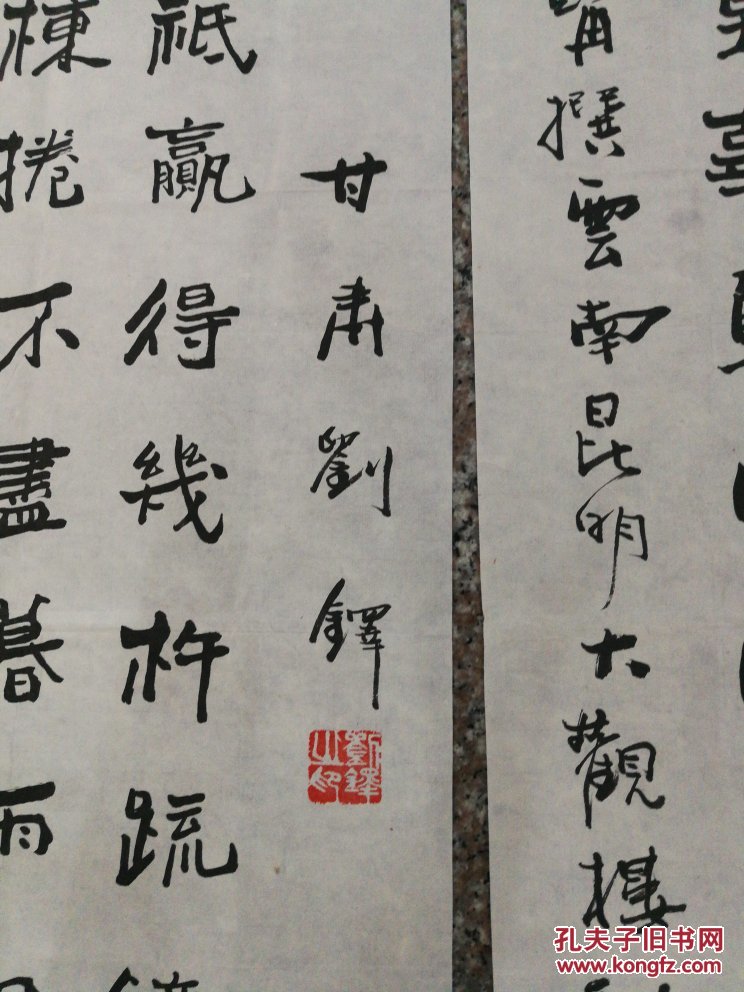 喜
撰雲南昆明大觀樓
棟捲不盡暮雨
祇贏得幾杵疏
甘肅劉鐸
劉鐸之印
孔夫子旧书网
www.kongfz.com